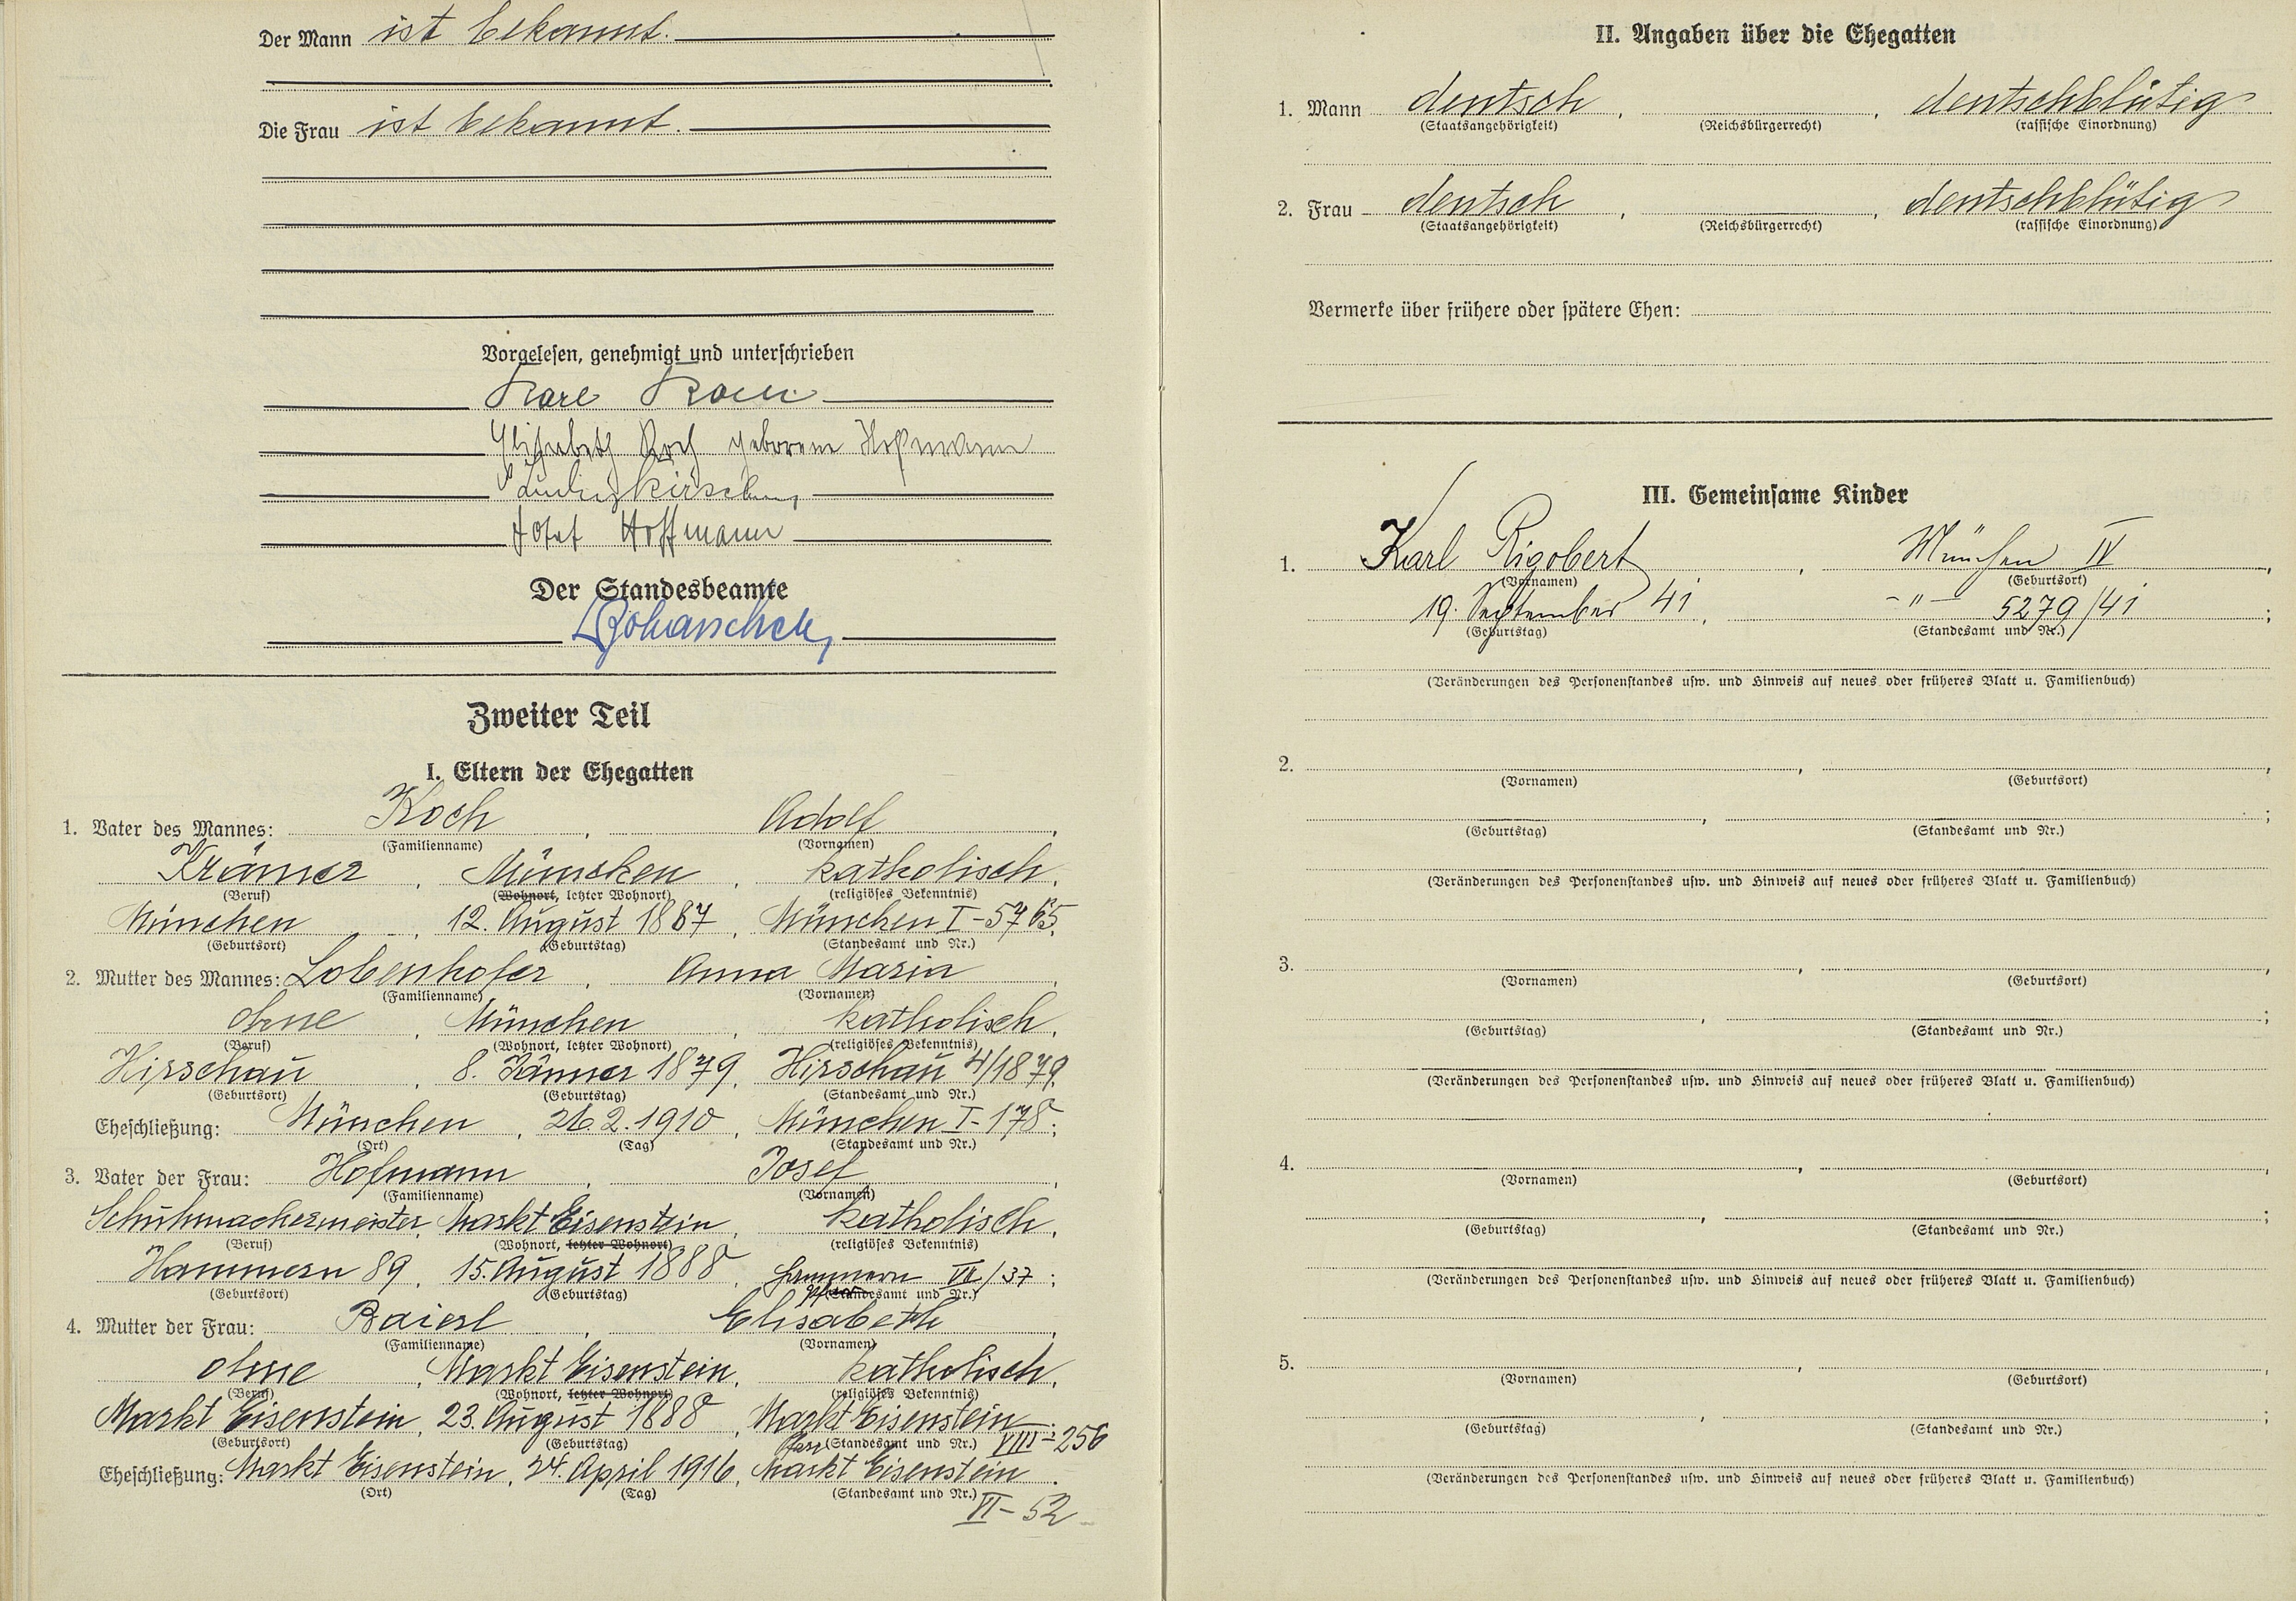 Der Mann ist bekannt.
Die Frau ist bekannt.
Vorgelesen, genehmigt und unterschrieben
Karl Koch
Elisabeth Koch geborene Hofmann
Josef Hoffmann
Der Standesbeamte
Zweiter Teil
I. Eltern der Ehegatten
1. Vater des Mannes: Koch, Adolf,
(Familienname) (Vornamen)
Krämer, München, katholisch,
(Beruf) (Wohnort, letzter Wohnort) (religiöses Bekenntnis)
München, 12. August 1867, München I-5765,
(Geburtsort) (Geburtstag) (Standesamt und Nr.)
2. Mutter des Mannes: Lobenhofer, Anna Maria,
(Familienname) (Vornamen)
ohne, München, katholisch,
(Beruf) (Wohnort, letzter Wohnort) (religiöses Bekenntnis)
Hirschau, 8. Jänner 1879, Hirschau 4/1879.
(Geburtsort) (Geburtstag) (Standesamt und Nr.)
Eheschließung: München, 26.2.1910, München I-178;
(Ort) (Tag) (Standesamt und Nr.)
3. Vater der Frau: Hofmann, Josef,
(Familienname) (Vornamen)
Schuhmachermeister, Markt Eisenstein, katholisch,
(Beruf) (Wohnort, letzter Wohnort) (religiöses Bekenntnis)
Hammern 89, 15. August 1888, Hammern VII/37;
(Geburtsort) (Geburtstag) (Standesamt und Nr.)
4. Mutter der Frau: Baierl, Elisabeth,
(Familienname) (Vornamen)
ohne, Markt Eisenstein, katholisch,
(Beruf) (Wohnort, letzter Wohnort) (religiöses Bekenntnis)
Markt Eisenstein, 23. August 1888, Markt Eisenstein;
(Geburtsort) (Geburtstag) (Standesamt und Nr.) VIII-256
Eheschließung: Markt Eisenstein, 24. April 1916, Markt Eisenstein.
(Ort) (Tag) (Standesamt und Nr.)
VI-52
II. Angaben über die Ehegatten
1. Mann deutsch, , deutschblütig
(Staatsangehörigkeit) (Reichsbürgerrecht) (rassische Einordnung)
2. Frau deutsch, , deutschblütig
(Staatsangehörigkeit) (Reichsbürgerrecht) (rassische Einordnung)
Vermerke über frühere oder spätere Ehen:
III. Gemeinsame Kinder
1. Karl Rigobert, München IV,
(Vornamen) (Geburtsort)
19. September 41, -"- 5279/41;
(Geburtstag) (Standesamt und Nr.)
(Veränderungen des Personenstandes usw. und Hinweis auf neues oder früheres Blatt u. Familienbuch)
2. , ,
(Vornamen) (Geburtsort)
, ;
(Geburtstag) (Standesamt und Nr.)
(Veränderungen des Personenstandes usw. und Hinweis auf neues oder früheres Blatt u. Familienbuch)
3. , ,
(Vornamen) (Geburtsort)
, ;
(Geburtstag) (Standesamt und Nr.)
(Veränderungen des Personenstandes usw. und Hinweis auf neues oder früheres Blatt u. Familienbuch)
4. , ,
(Vornamen) (Geburtsort)
, ;
(Geburtstag) (Standesamt und Nr.)
(Veränderungen des Personenstandes usw. und Hinweis auf neues oder früheres Blatt u. Familienbuch)
5. , ,
(Vornamen) (Geburtsort)
, ;
(Geburtstag) (Standesamt und Nr.)
(Veränderungen des Personenstandes usw. und Hinweis auf neues oder früheres Blatt u. Familienbuch)